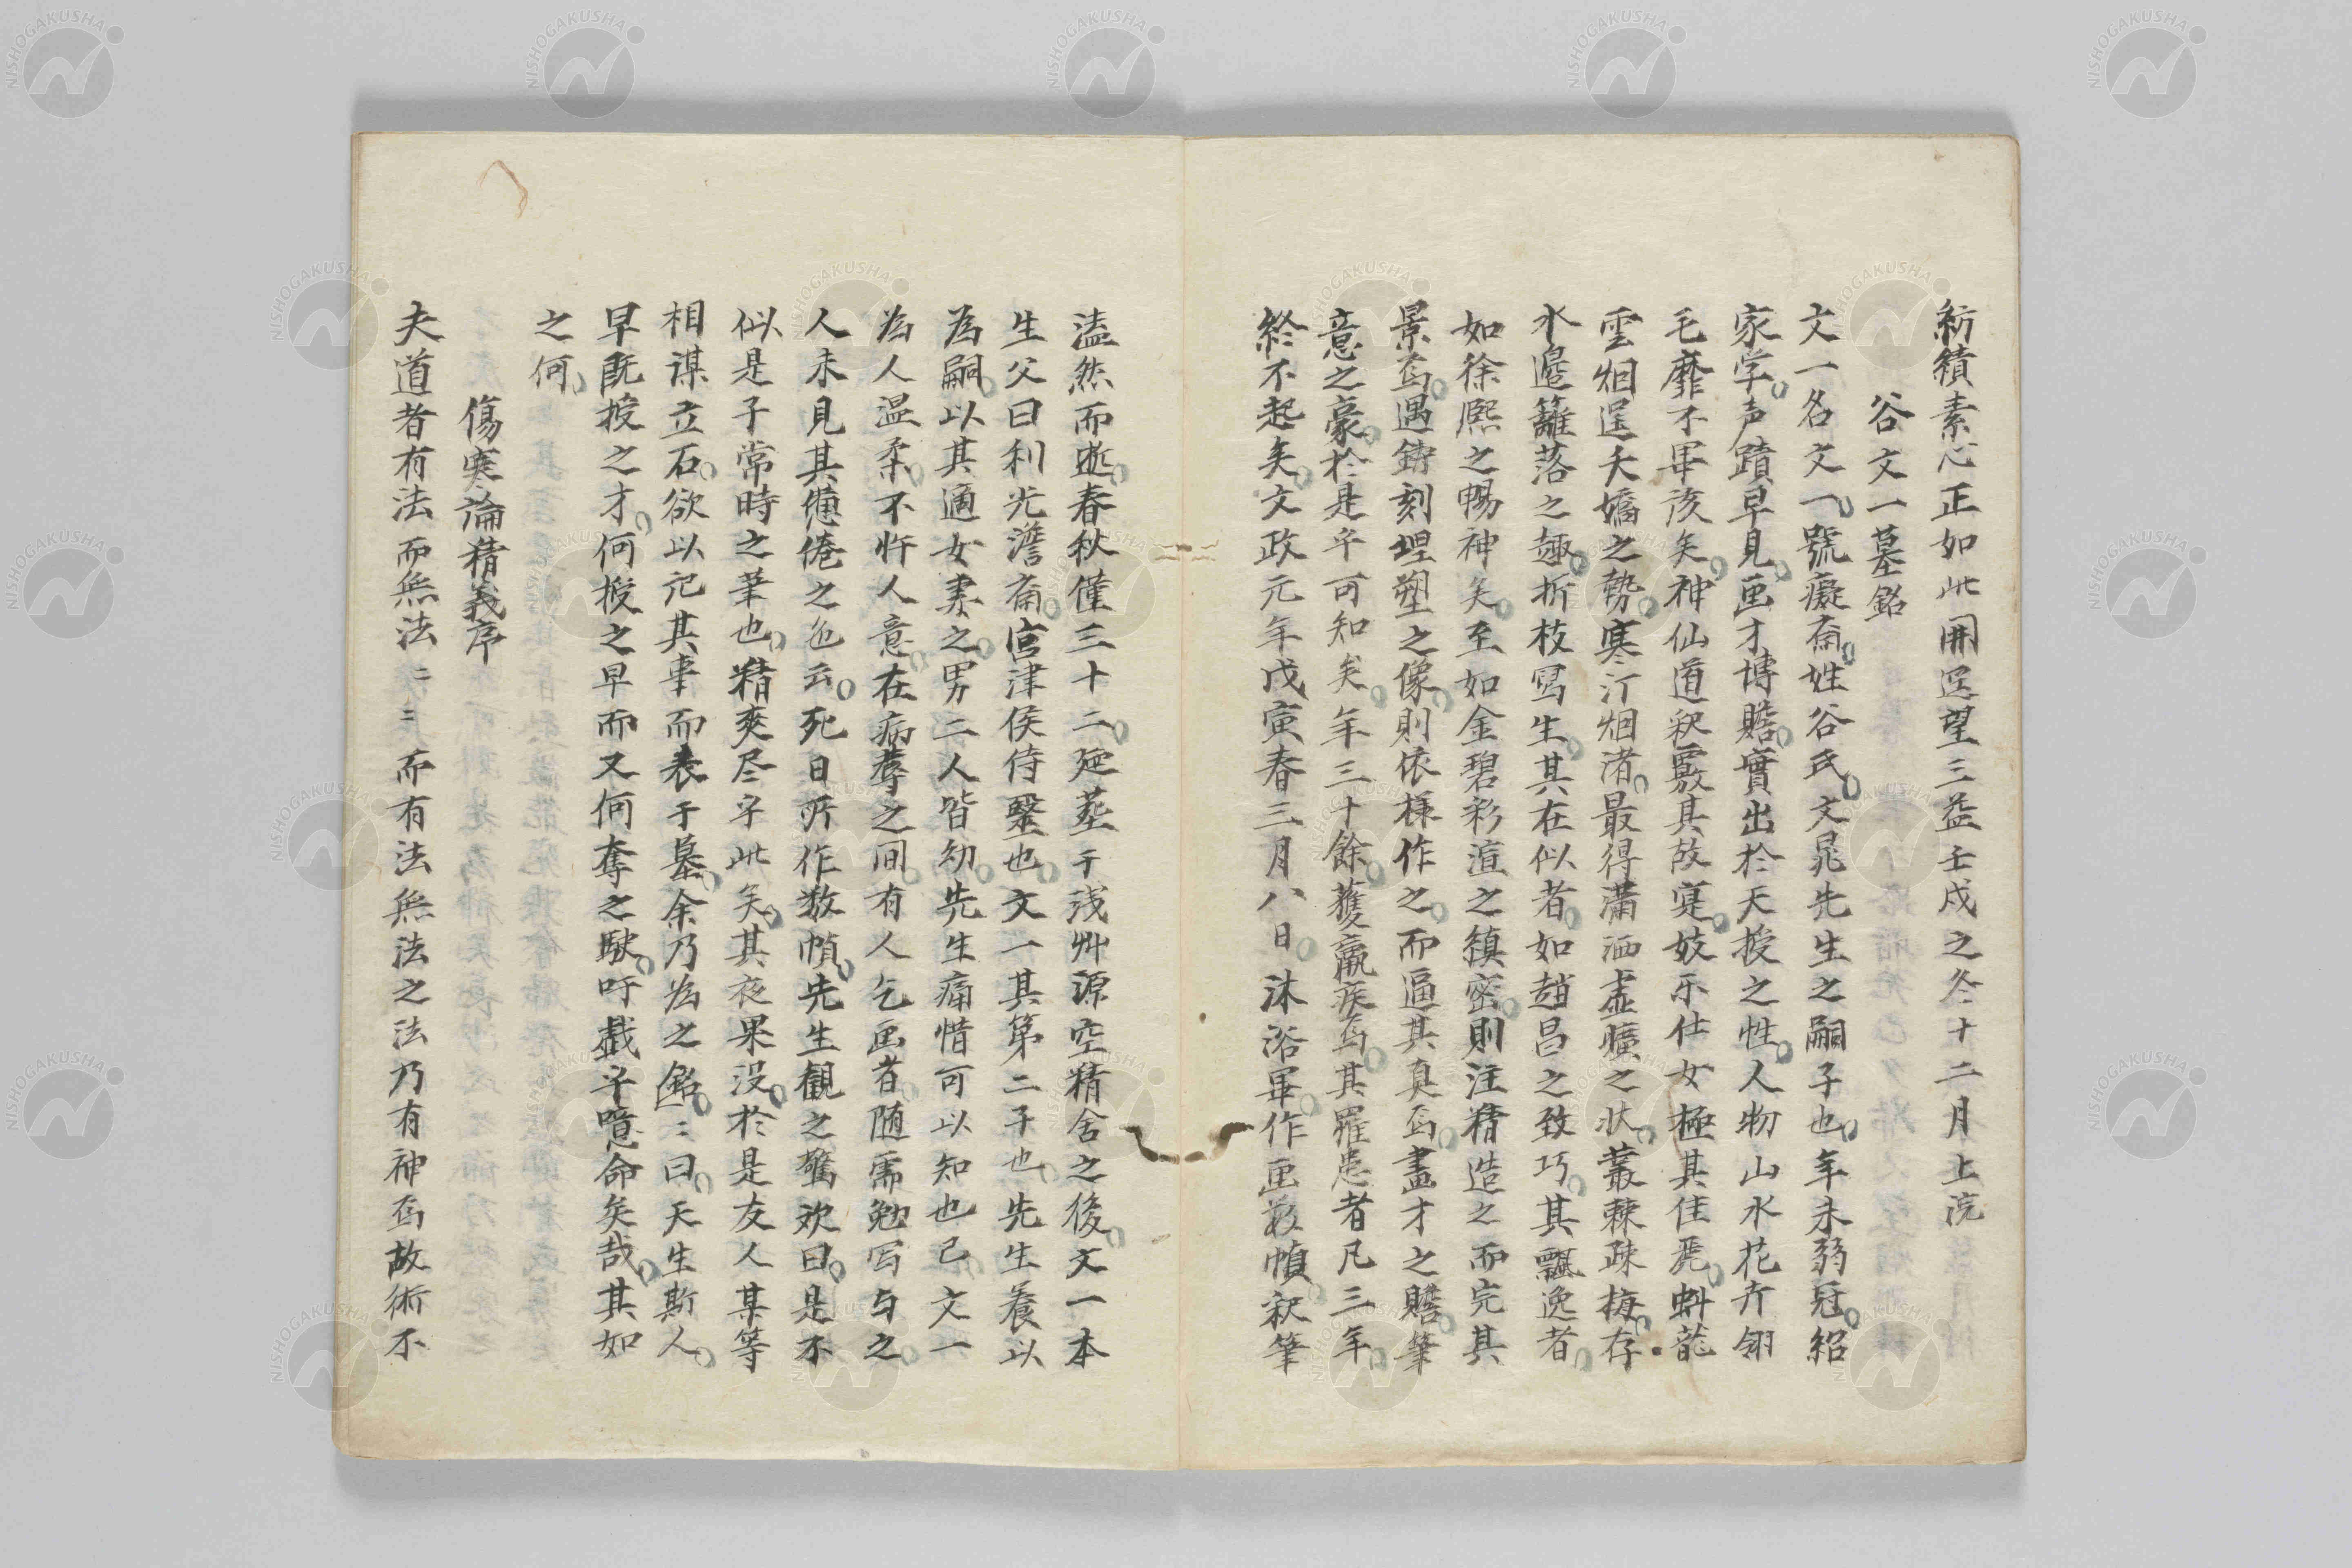 紡績素心正如此開逕望三益壬戌之冬十二月上浣
谷文一墓銘
文一名文一號癡斎姓谷氏文晁先生之嗣子也年未弱冠紹
家学声蹟早見画才博贍實出於天授之性人物山水花卉翎
毛靡不畢該矣神仙道釈覈其故寔妓乐仕女極其佳麗蚪龍
雲烟逞夭矯之勢寒汀烟渚最得瀟洒虚曠之状叢棘疎梅存
水邊籬落之趣折枝写生其在似者如趙昌之致巧其飄逸者
如徐熙之暢神矣至如金碧彩渲之縝密則注精造之而完其
景焉遇鋳刻埋塑之像則依様作之而逼其真焉畫才之贍筆
意之豪於是乎可知矣年三十餘獲羸疾焉其罹患者凡三年
終不起矣文政元年戊寅春三月八日沐浴畢作画数幀釈筆
溘然而逝春秋僅三十二葬于浅艸源空精舍之後文一本
生父曰利光澹斎宮津侯侍醫也文一其第二子也先生養以
為嗣以其適女妻之男二人皆幼先生痛惜可以知也已文一
為人温柔不忤人意在病蓐之间有人乞画者随需勉写与之
人未見其憊倦之色云死日所作数幀先生観之驚欢曰是不
似是子常時之筆也精爽尽乎此矣其夜果没於是友人某等
相謀立石欲以記其事而表于墓余乃為之銘〻曰天生斯人
早既授之才何授之早而又何奪之駛吁戯乎噫命矣哉其如
之何
傷寒論精義序
夫道者有法而無法〻〻而有法無法之法乃有神焉故術不